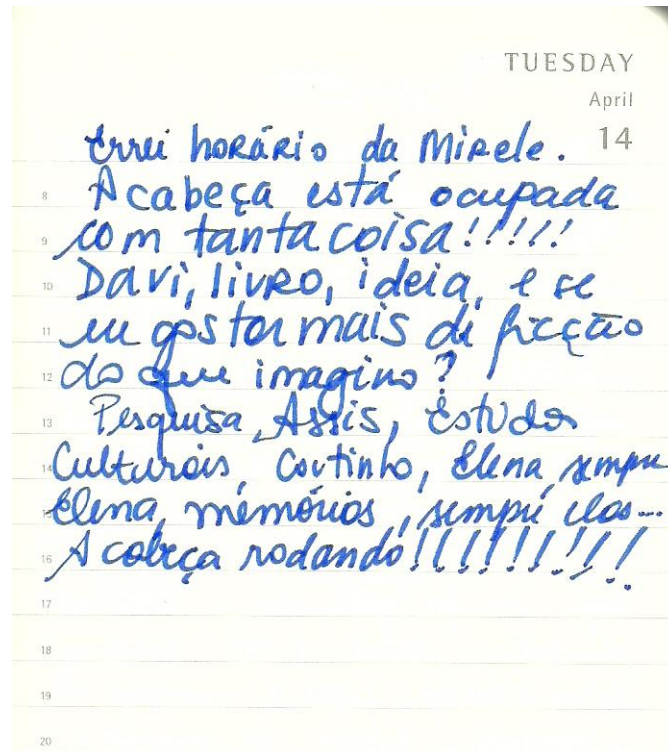 TUESDAY
April
14
Errei horário da Mirele.
8
A cabeça está ocupada
9
com tanta coisa!!!!!
10
Davi, livro, ideia, e se
11
eu gostar mais de ficção
12
do que imagino?
13
Pesquisa, Assis, Estudos
14
Culturais, Coutinho, Elena, sempre
15
Elena, memórias, sempre elas...
16
A cabeça rodando!!!!!!!!!
17
18
19
20